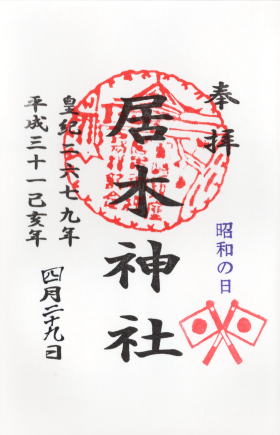 奉拝
昭和の日
居木神社
皇紀二六七九年
平成三十一己亥年
四月二十九日